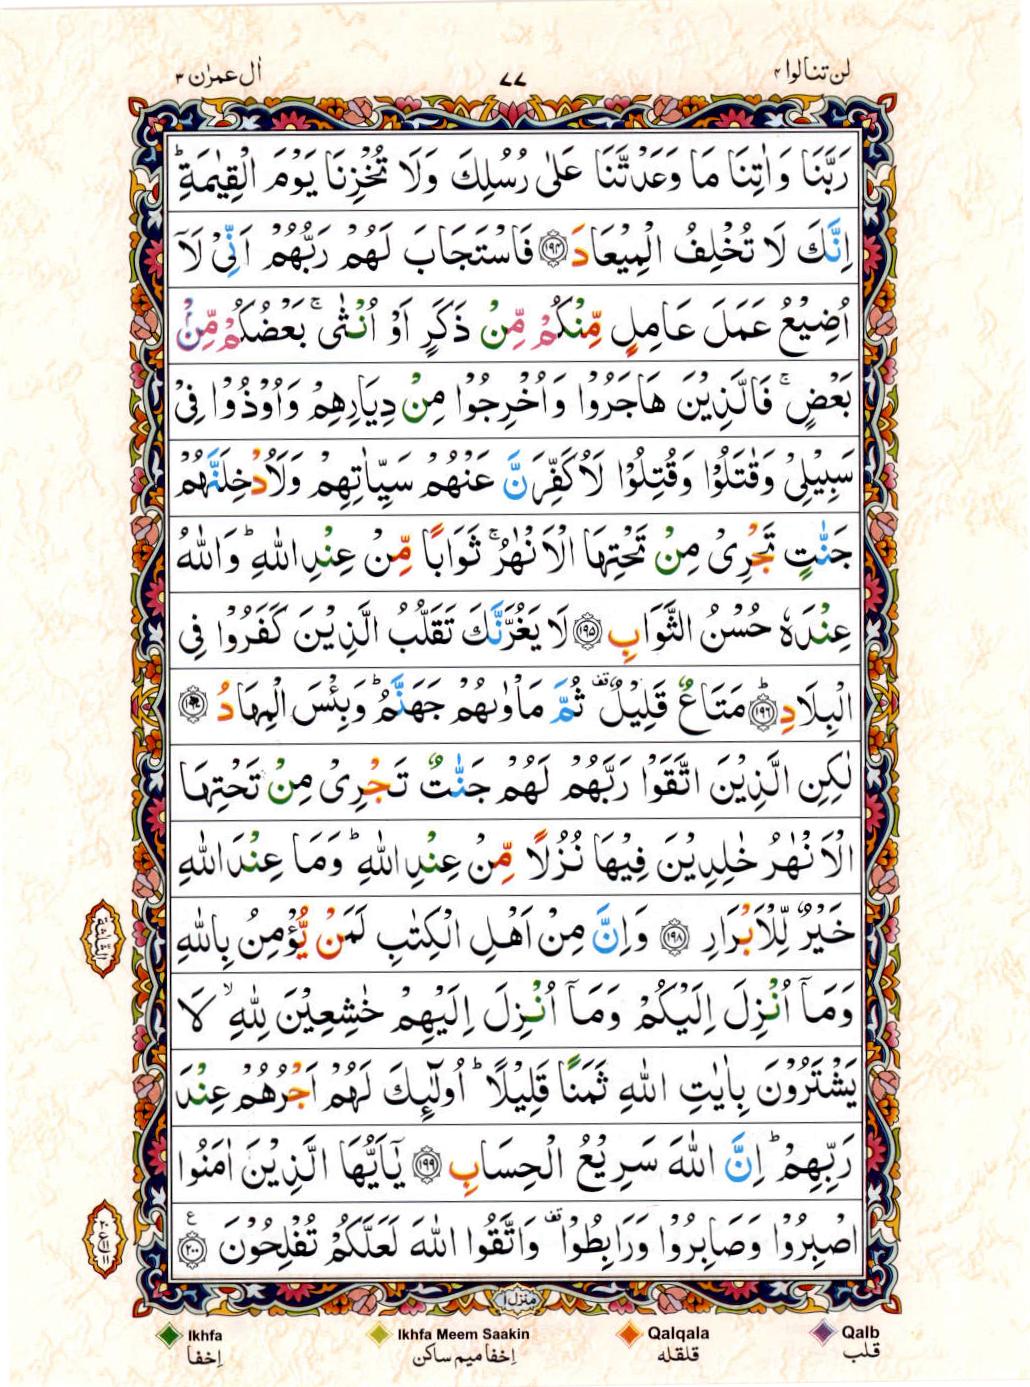 لن تنالوا ۴
۷۷
اٰل عمرٰن ۳
رَبَّنَا وَاٰتِنَا مَا وَعَدْتَّنَا عَلٰى رُسُلِكَ وَلَا تُخْزِنَا يَوْمَ الْقِيٰمَةِ ؕ
اِنَّكَ لَا تُخْلِفُ الْمِيْعَادَ ۝۱۹۴ فَاسْتَجَابَ لَهُمْ رَبُّهُمْ اَنِّىْ لَاۤ
اُضِيْعُ عَمَلَ عَامِلٍ مِّنْكُمْ مِّنْ ذَكَرٍ اَوْ اُنْثٰى ۚ بَعْضُكُمْ مِّنْۢ
بَعْضٍ ۚ فَالَّذِيْنَ هَاجَرُوْا وَاُخْرِجُوْا مِنْ دِيَارِهِمْ وَاُوْذُوْا فِىْ
سَبِيْلِىْ وَقٰتَلُوْا وَقُتِلُوْا لَاُكَفِّرَنَّ عَنْهُمْ سَيِّاٰتِهِمْ وَلَاُدْخِلَنَّهُمْ
جَنّٰتٍ تَجْرِىْ مِنْ تَحْتِهَا الْاَنْهٰرُ ۚ ثَوَابًا مِّنْ عِنْدِ اللّٰهِ ؕ وَاللّٰهُ
عِنْدَهٗ حُسْنُ الثَّوَابِ ۝۱۹۵ لَا يَغُرَّنَّكَ تَقَلُّبُ الَّذِيْنَ كَفَرُوْا فِى
الْبِلَادِ ؕ ۝۱۹۶ مَتَاعٌ قَلِيْلٌ ۟ ثُمَّ مَاْوٰىهُمْ جَهَنَّمُ ؕ وَبِئْسَ الْمِهَادُ ۝۱۹۷
لٰكِنِ الَّذِيْنَ اتَّقَوْا رَبَّهُمْ لَهُمْ جَنّٰتٌ تَجْرِىْ مِنْ تَحْتِهَا
الْاَنْهٰرُ خٰلِدِيْنَ فِيْهَا نُزُلًا مِّنْ عِنْدِ اللّٰهِ ؕ وَمَا عِنْدَ اللّٰهِ
خَيْرٌ لِّلْاَبْرَارِ ۝۱۹۸ وَاِنَّ مِنْ اَهْلِ الْكِتٰبِ لَمَنْ يُّؤْمِنُ بِاللّٰهِ
وَمَاۤ اُنْزِلَ اِلَيْكُمْ وَمَاۤ اُنْزِلَ اِلَيْهِمْ خٰشِعِيْنَ لِلّٰهِ ۙ لَا
يَشْتَرُوْنَ بِاٰيٰتِ اللّٰهِ ثَمَنًا قَلِيْلًا ؕ اُولٰٓئِكَ لَهُمْ اَجْرُهُمْ عِنْدَ
رَبِّهِمْ ؕ اِنَّ اللّٰهَ سَرِيْعُ الْحِسَابِ ۝۱۹۹ يٰۤاَيُّهَا الَّذِيْنَ اٰمَنُوا
اصْبِرُوْا وَصَابِرُوْا وَرَابِطُوْا ۟ وَاتَّقُوا اللّٰهَ لَعَلَّكُمْ تُفْلِحُوْنَ ۝۲۰۰ ع
منزل ۱
Ikhfa
Ikhfa Meem Saakin
Qalqala
Qalb
اِخفا
اِخفا میم ساکن
قلقله
قلب